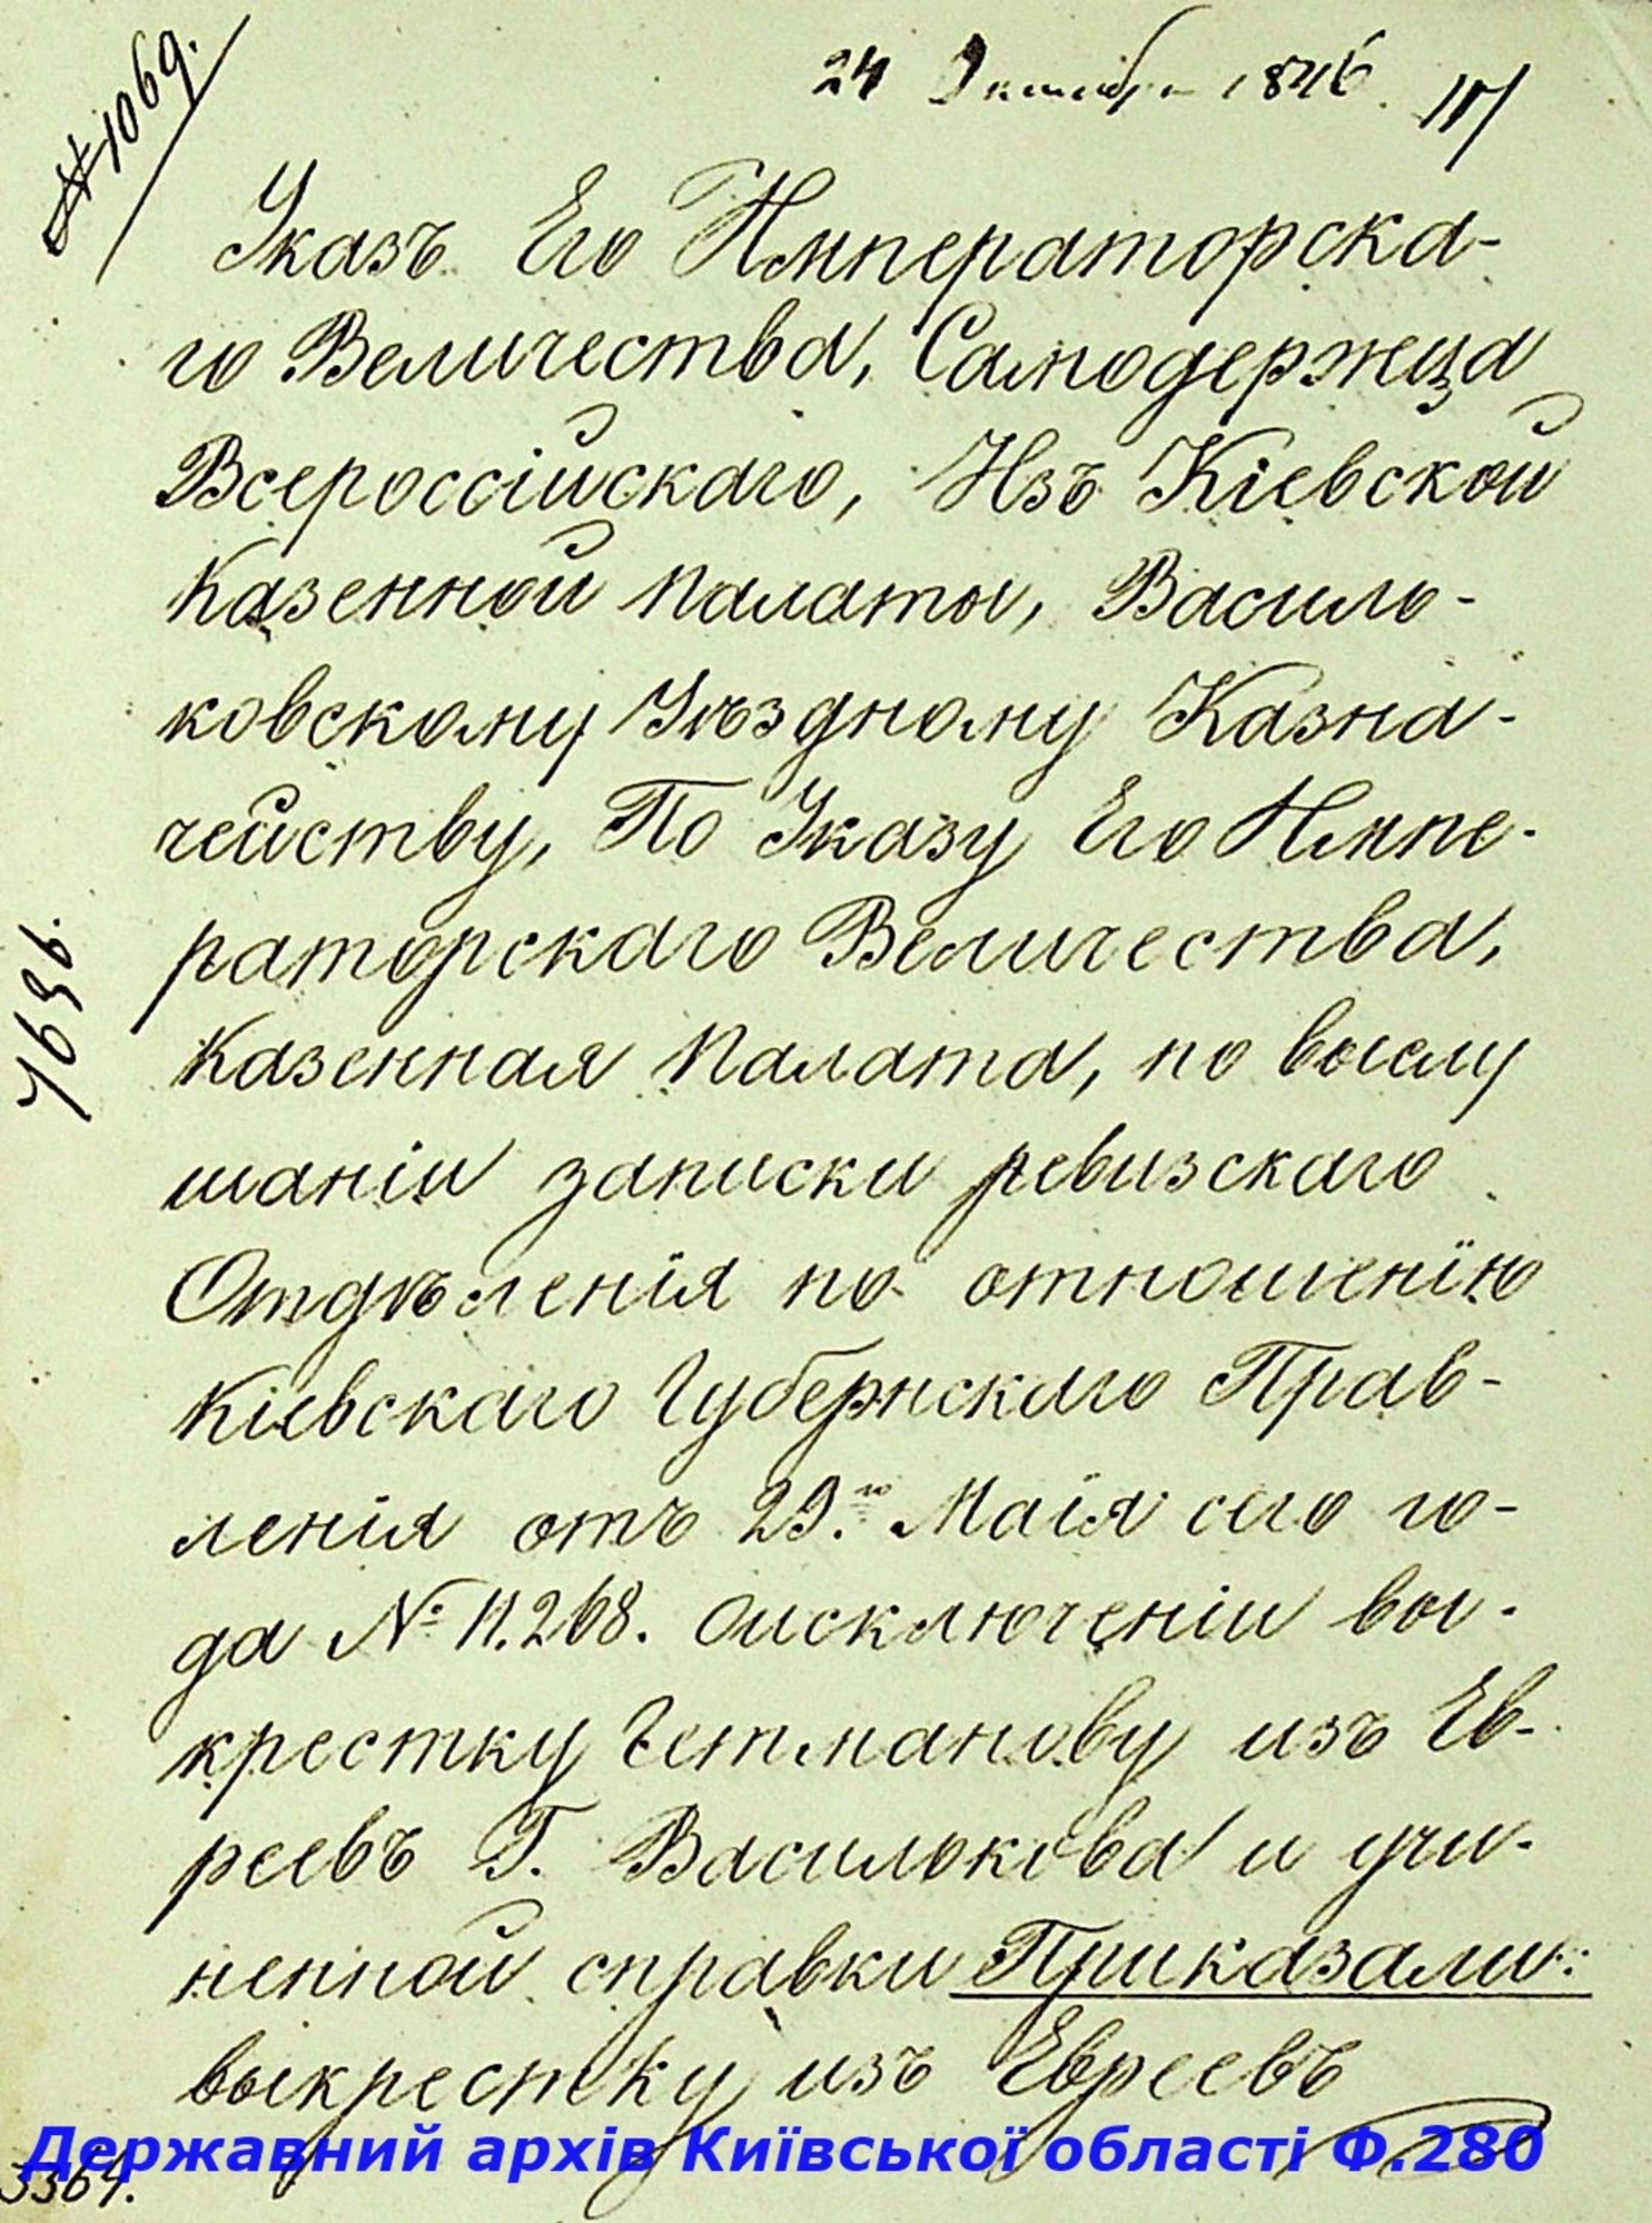 № 1069.
24 Октября 1846.
Указъ Его Императорска-
го Величества, Самодержца
Всероссійскаго, Изъ Кіевской
Казенной Палаты, Василь-
ковскому Уѣздному Казна-
чейству, По Указу Его Импе-
раторскаго Величества,
Казенная Палата, по выслу
шаніи записки ревизскаго
Отдѣленія по отношенію
Кіевскаго Губернскаго Прав-
ленія отъ 29го Маія сего го-
да № 11.268. оисключеніи вы-
крестку Гетманову изъ Ев-
реевъ Г. Василькова и учи-
ненной справки Приказали:
выкрестку изъ Евреевъ
3364.
Державний архів Київської області Ф.280